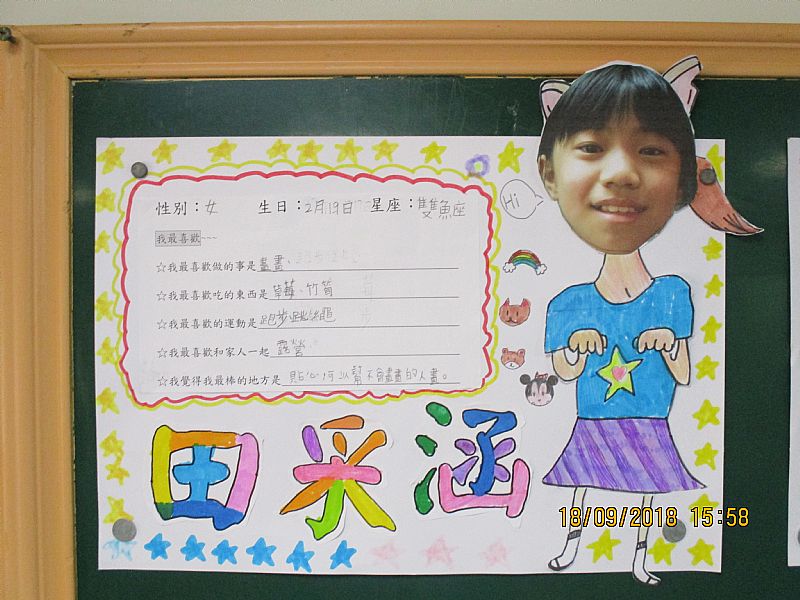 性別：女 生日：2月19日 星座：雙魚座
Hi
我最喜歡~~~
☆我最喜歡做的事是畫畫、
☆我最喜歡吃的東西是草莓、竹筍
☆我最喜歡的運動是跑步跳繩
☆我最喜歡和家人一起露營
☆我覺得我最棒的地方是貼心可以幫不會畫畫的人畫。
田采涵
18/09/2018 15:58